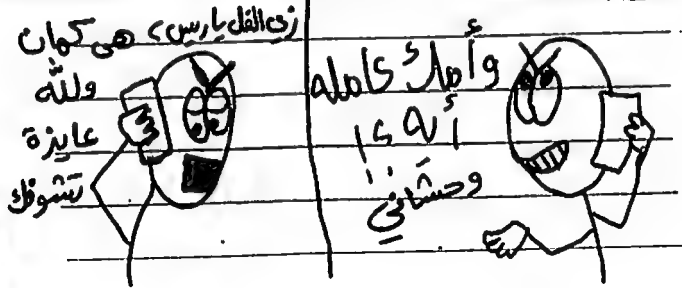 وأمك عامله
أيه ؟!
وحشاني
زي الفل ياريس، هي كمان
ولله
عايزة
تشوفك